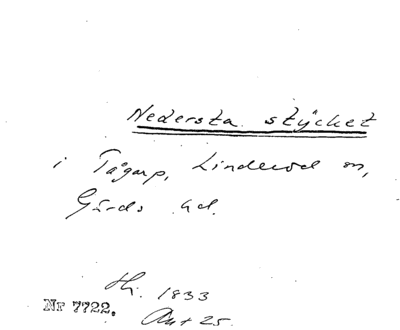 Nedersta stycket
i Tågarp, Linderöd sn,
Gärds hd.
Hi. 1833
Akt 25.
Nr 7722.